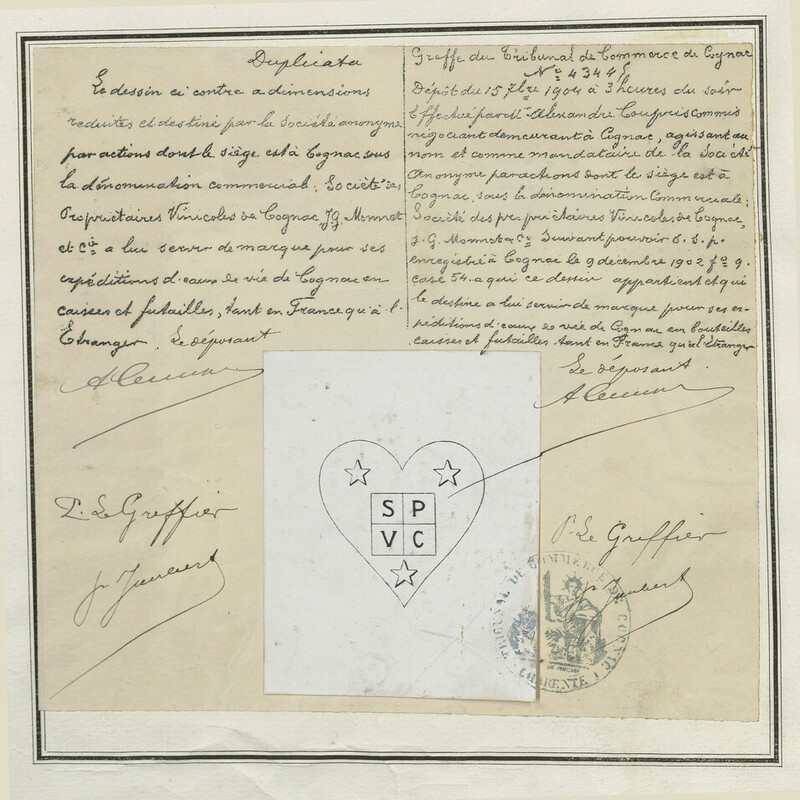 Duplicata
Le dessin ci contre a dimensions
reduites et destiné par la Société anonyme
par actions dont le siège est à Cognac sous
la dénomination commerciale: Société des
Propriétaires Vinicoles de Cognac J.G. Monnet
et Cie a lui servir de marque pour ses
expéditions d'eaux de vie de Cognac en
caisses et futailles, tant en France qu'à l'
Étranger. Le déposant
P. Le Greffier
Greffe du Tribunal de Commerce de Cognac
No 4344
Dépôt du 15 7bre 1904 à 3 heures du soir
Effectué par Mr Alexandre Coupris commis
négociant demeurant à Cognac, agissant au
nom et comme mandataire de la Société
Anonyme par actions dont le siège est à
Cognac, sous la dénomination Commerciale;
Société des propriétaires Vinicoles de Cognac,
J. G. Monnet & Co Suivant pouvoir S. S. p.
enregistré à Cognac le 9 décembre 1902 fo 9.
case 54. a qui ce dessin appartient et qui
le destine a lui servir de marque pour ses ex-
péditions d'eaux de vie de Cognac en bouteilles
caisses et futailles tant en France qu'à l'Étranger
Le déposant.
P. Le Greffier
S P
V C
TRIBUNAL DE COMMERCE DE COGNAC
(CHARENTE)